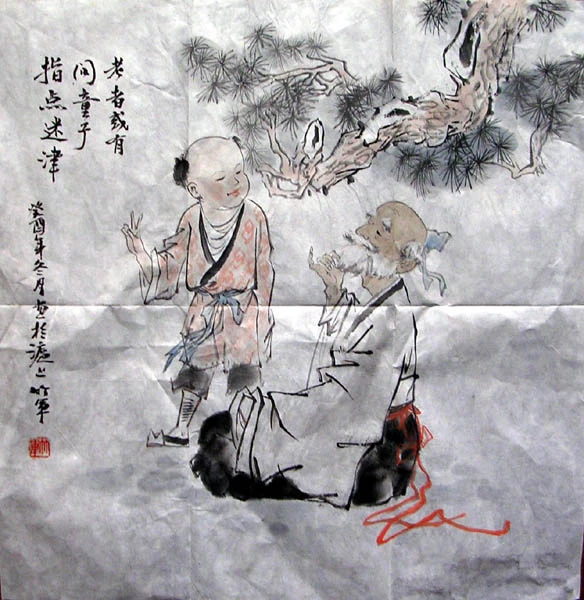 老者或有
问童子
指点迷津
癸酉年冬月画于沪上